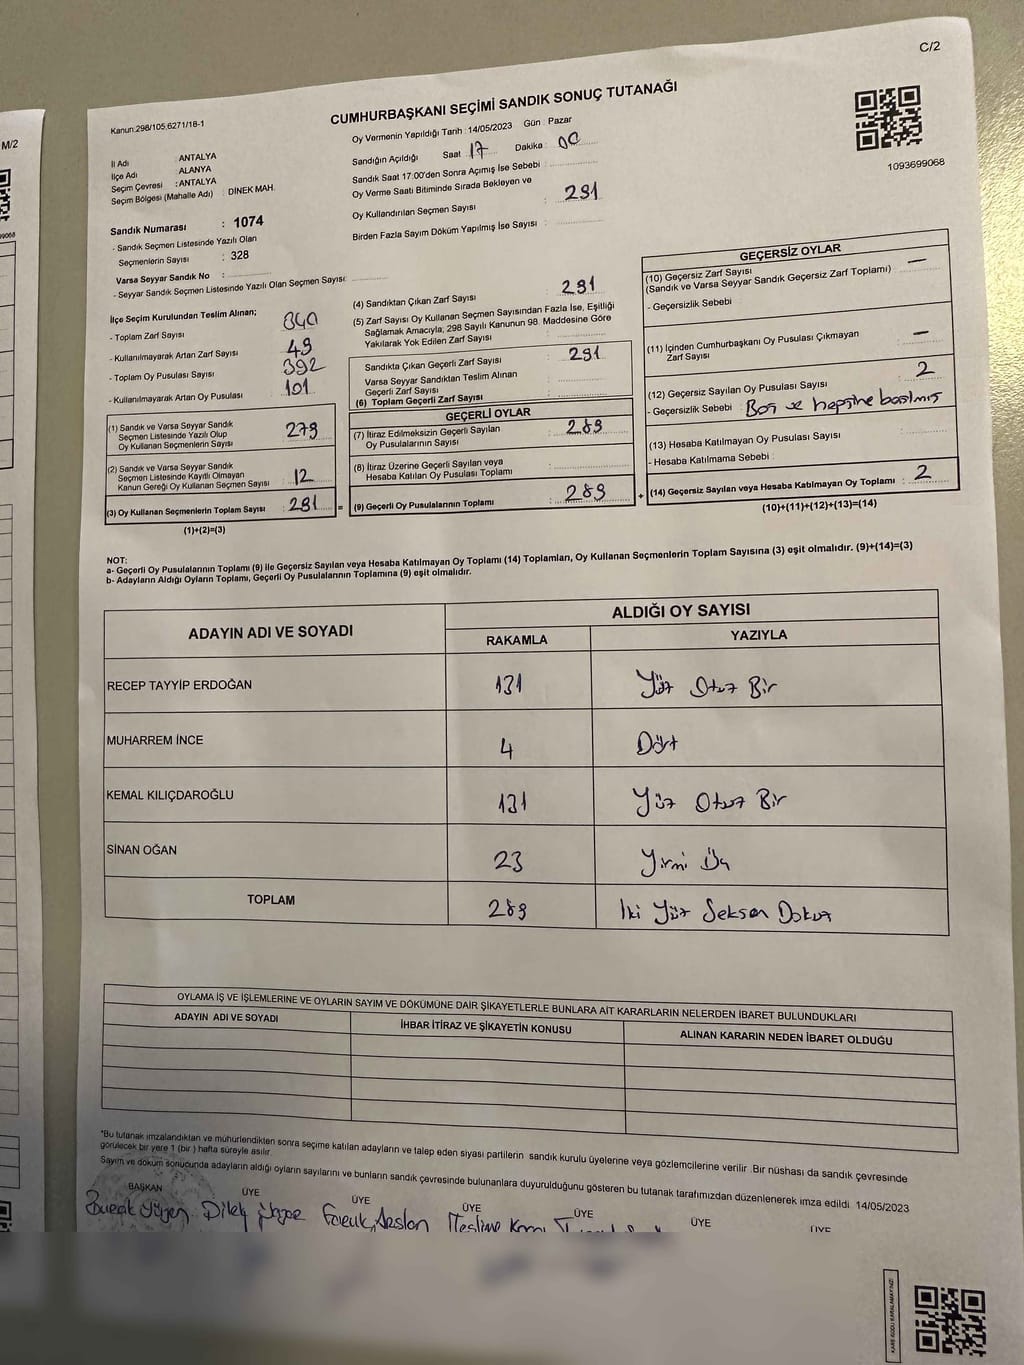 C/2
M/2
CUMHURBAŞKANI SEÇİMİ SANDIK SONUÇ TUTANAĞI
Kanun:298/105,6271/18-1
Oy Vermenin Yapıldığı Tarih : 14/05/2023 Gün : Pazar
1093699068
İl Adı : ANTALYA
İlçe Adı : ALANYA
Seçim Çevresi : ANTALYA
Seçim Bölgesi (Mahalle Adı) : DİNEK MAH.
Sandık Numarası : 1074
- Sandık Seçmen Listesinde Yazılı Olan
Seçmenlerin Sayısı : 328
Varsa Seyyar Sandık No :
- Seyyar Sandık Seçmen Listesinde Yazılı Olan Seçmen Sayısı:
Sandığın Açıldığı Saat 17 Dakika : 00
Sandık Saat 17.00'den Sonra Açımış İse Sebebi :
Oy Verme Saati Bitiminde Sırada Bekleyen ve
Oy Kullandırılan Seçmen Sayısı : 291
Birden Fazla Sayım Döküm Yapılmış İse Sayısı :
İlçe Seçim Kurulundan Teslim Alınan;
- Toplam Zarf Sayısı : 340
- Kullanılmayarak Artan Zarf Sayısı : 49
- Toplam Oy Pusulası Sayısı : 392
- Kullanılmayarak Artan Oy Pusulası : 101
(1) Sandık ve Varsa Seyyar Sandık
Seçmen Listesinde Yazılı Olup
Oy Kullanan Seçmenlerin Sayısı : 279
(2) Sandık ve Varsa Seyyar Sandık
Seçmen Listesinde Kayıtlı Olmayan
Kanun Gereği Oy Kullanan Seçmen Sayısı : 12
(3) Oy Kullanan Seçmenlerin Toplam Sayısı : 291
(1)+(2)=(3)
(4) Sandıktan Çıkan Zarf Sayısı : 291
(5) Zarf Sayısı Oy Kullanan Seçmen Sayısından Fazla İse, Eşitliği
Sağlamak Amacıyla; 298 Sayılı Kanunun 98. Maddesine Göre
Yakılarak Yok Edilen Zarf Sayısı :
Sandıkta Çıkan Geçerli Zarf Sayısı : 291
Varsa Seyyar Sandıktan Teslim Alınan
Geçerli Zarf Sayısı :
(6) Toplam Geçerli Zarf Sayısı :
=
GEÇERLİ OYLAR
(7) İtiraz Edilmeksizin Geçerli Sayılan
Oy Pusulalarının Sayısı : 289
(8) İtiraz Üzerine Geçerli Sayılan veya
Hesaba Katılan Oy Pusulası Toplamı :
(9) Geçerli Oy Pusulalarının Toplamı : 289
+
GEÇERSİZ OYLAR
(10) Geçersiz Zarf Sayısı : —
(Sandık ve Varsa Seyyar Sandık Geçersiz Zarf Toplamı)
- Geçersizlik Sebebi
(11) İçinden Cumhurbaşkanı Oy Pusulası Çıkmayan : —
Zarf Sayısı
(12) Geçersiz Sayılan Oy Pusulası Sayısı : 2
- Geçersizlik Sebebi : Boş ve hepsine basılmış
(13) Hesaba Katılmayan Oy Pusulası Sayısı :
- Hesaba Katılmama Sebebi :
(14) Geçersiz Sayılan veya Hesaba Katılmayan Oy Toplamı : 2
(10)+(11)+(12)+(13)=(14)
NOT:
a- Geçerli Oy Pusulalarının Toplamı (9) ile Geçersiz Sayılan veya Hesaba Katılmayan Oy Toplamı (14) Toplamları, Oy Kullanan Seçmenlerin Toplam Sayısına (3) eşit olmalıdır. (9)+(14)=(3)
b- Adayların Aldığı Oyların Toplamı, Geçerli Oy Pusulalarının Toplamına (9) eşit olmalıdır.
ADAYIN ADI VE SOYADI
ALDIĞI OY SAYISI
RAKAMLA YAZIYLA
RECEP TAYYİP ERDOĞAN 131 Yüz Otuz Bir
MUHARREM İNCE 4 Dört
KEMAL KILIÇDAROĞLU 131 Yüz Otuz Bir
SİNAN OĞAN 23 Yirmi Üç
TOPLAM 289 İki Yüz Seksen Dokuz
OYLAMA İŞ VE İŞLEMLERİNE VE OYLARIN SAYIM VE DÖKÜMÜNE DAİR ŞİKAYETLERLE BUNLARA AİT KARARLARIN NELERDEN İBARET BULUNDUKLARI
ADAYIN ADI VE SOYADI İHBAR İTİRAZ VE ŞİKAYETİN KONUSU ALINAN KARARIN NEDEN İBARET OLDUĞU
*Bu tutanak imzalandıktan ve mühürlendikten sonra seçime katılan adayların ve talep eden siyasi partilerin sandık kurulu üyelerine veya gözlemcilerine verilir. Bir nüshası da sandık çevresinde
görülecek bir yere 1 (bir ) hafta süreyle asılır.
Sayım ve döküm sonucunda adayların aldığı oyların sayılarını ve bunların sandık çevresinde bulunanlara duyurulduğunu gösteren bu tutanak tarafımızdan düzenlenerek imza edildi. 14/05/2023
BAŞKAN ÜYE ÜYE ÜYE ÜYE ÜYE ÜYE
Burak Dilek Faruk Arslan